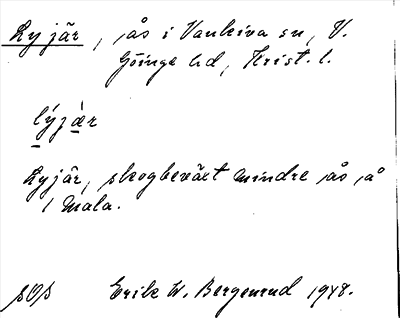 Lyjär, ås i Vankiva sn, V.
Göinge hd, Krist. l.
lýjàr
Lyjär, skogbeväxt mindre ås på
Mala.
SOS Erik W. Bergenrud 1948.